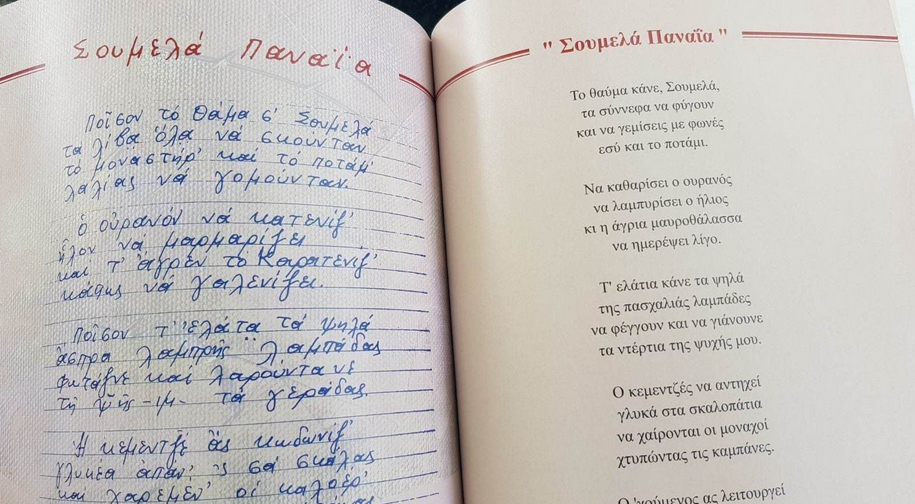 Σουμελά Παναΐα
Ποῖσον τό θάμα σ' Σουμελά
τα λίβα ὅλα νά σκοῦνταν
τό μοναστήρ' καί τό ποτάμ'
λαλίας νά γομοῦνταν.
ὁ οὐρανόν νά κατενίζ'
ἥλον νά μαρμαρίζει
και τ' ἄγρεν το Καρατενίζ'
κάθης νά γαλενίζει.
Ποῖσον τ' ἐλάτα τά ψηλά
ἄσπρα λαμπρῆς λαμπάδας
φωτάζνε καί λαροῦντανε
τῆ ψῆς-ιμ- τά γεράδας.
Ἡ κεμεντζέ ἄς κωδωνίζ'
γλυκέα ἀπάν' 'ς σά σκάλας
και χαρεμέν' οἱ καλοέρ'
" Σουμελά Παναΐα "
Το θαύμα κάνε, Σουμελά,
τα σύννεφα να φύγουν
και να γεμίσεις με φωνές
εσύ και το ποτάμι.
Να καθαρίσει ο ουρανός
να λαμπυρίσει ο ήλιος
κι η άγρια μαυροθάλασσα
να ημερέψει λίγο.
Τ' ελάτια κάνε τα ψηλά
της πασχαλιάς λαμπάδες
να φέγγουν και να γιάνουνε
τα ντέρτια της ψυχής μου.
Ο κεμεντζές να αντηχεί
γλυκά στα σκαλοπάτια
να χαίρονται οι μοναχοί
χτυπώντας τις καμπάνες.
Ο 'γούμενος ας λειτουργεί